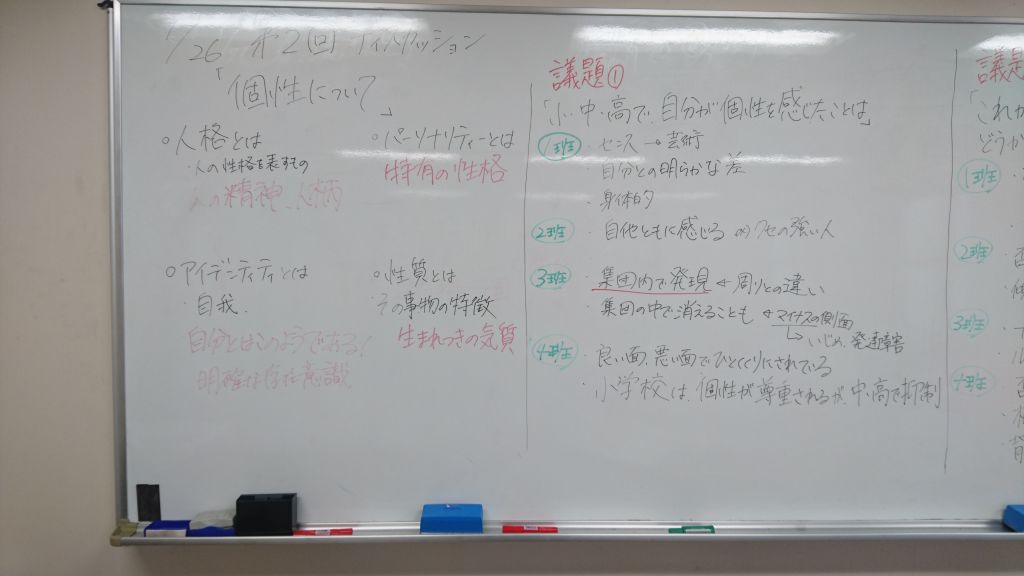 1/26 第2回 ディスカッション
「個性について」
○人格とは
・人の性格を表すもの
人の精神、人柄
○パーソナリティーとは
特有の性格
○アイデンティティとは
・自我
自分とはこのようである!
明確な存在意識
○性質とは
・その事物の特徴
生まれつきの気質
議題①
「小・中・高で、自分が個性を感じたことは」
1班 ・センス → 芸術
・自分との明らかな差
・身体的
2班 ・自他ともに感じる ex) クセの強い人
3班 ・集団内で発現 ← 周りとの違い
・集団の中で消えることも ← マイナスの側面
↳ いじめ、発達障害
4班 ・良い面、悪い面でひとくくりにされている
・小学校は、個性が尊重されるが、中・高で抑制
議
「これか
どうか
1班
2班
3班
4班